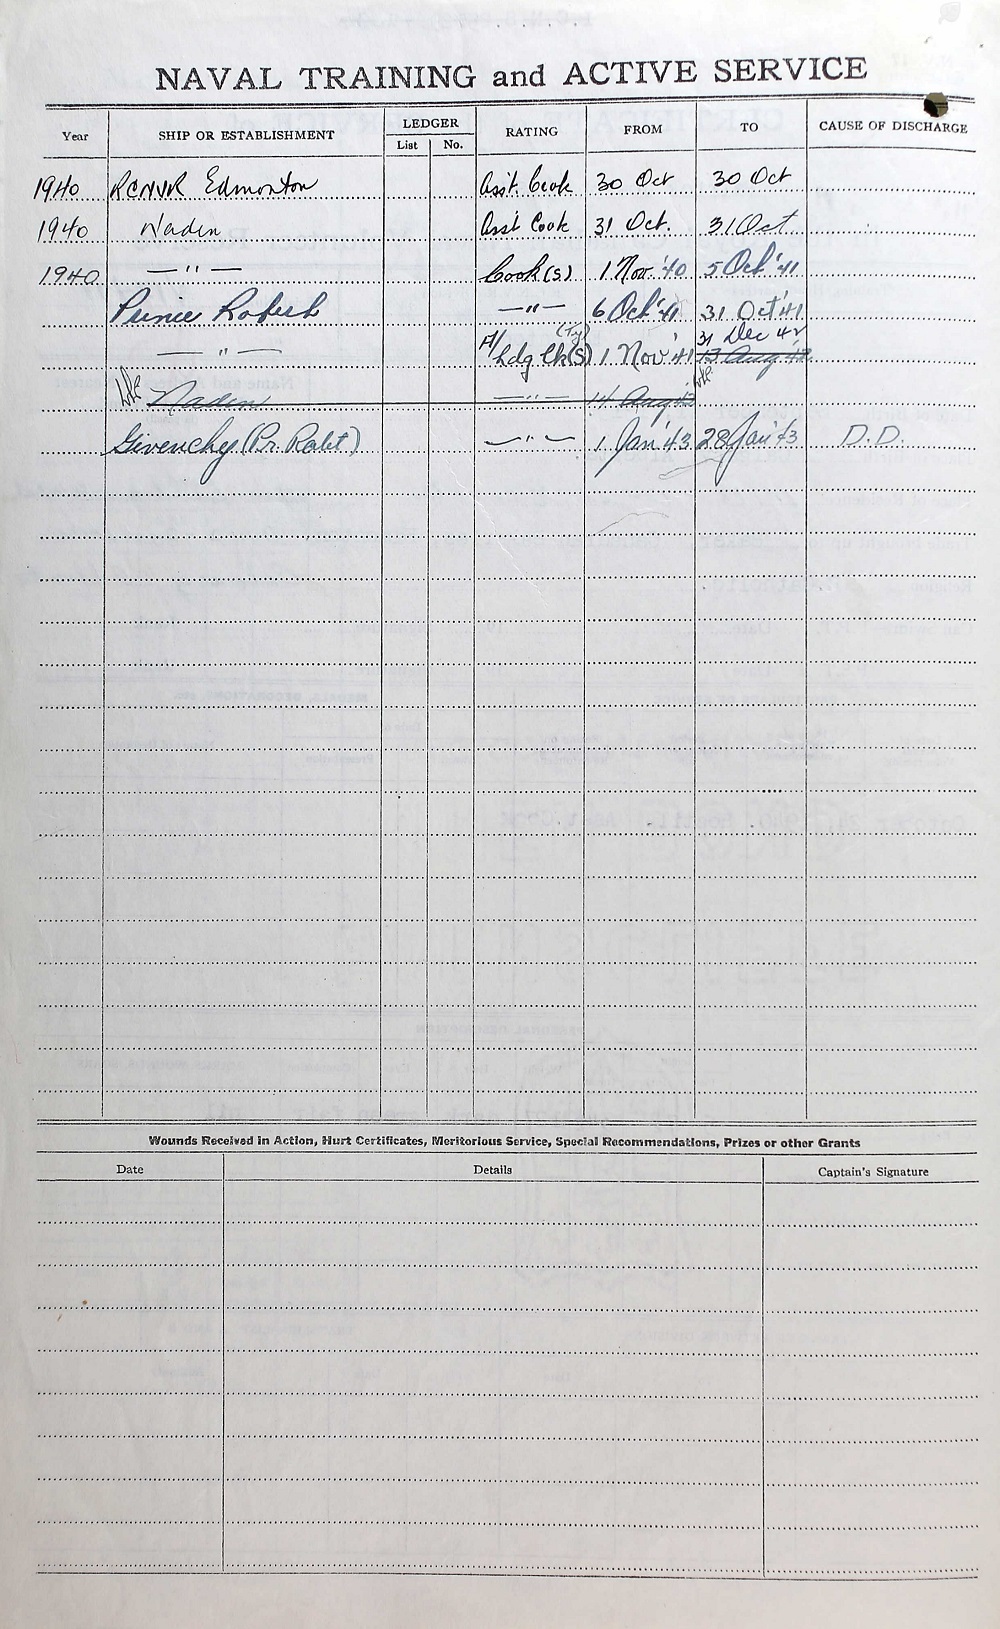 NAVAL TRAINING and ACTIVE SERVICE
Year SHIP OR ESTABLISHMENT LEDGER RATING FROM TO CAUSE OF DISCHARGE
List No.
1940 RCNVR Edmonton Ass't Cook 30 Oct 30 Oct
1940 Naden Ass't Cook 31 Oct. 31 Oct
1940 —"— Cook(s) 1 Nov '40 5 Oct '41
Prince Robert —"— 6 Oct '41 31 Oct '41
—"— A/Ldg Ck(S) (Ty) 1 Nov '41 13 Aug '42 31 Dec 42
Naden —"— 14 Aug '42
Givenchy (Pr. Robt) —"— 1 Jan '43 28 Jan '43 D.D.
Wounds Received in Action, Hurt Certificates, Meritorious Service, Special Recommendations, Prizes or other Grants
Date Details Captain's Signature